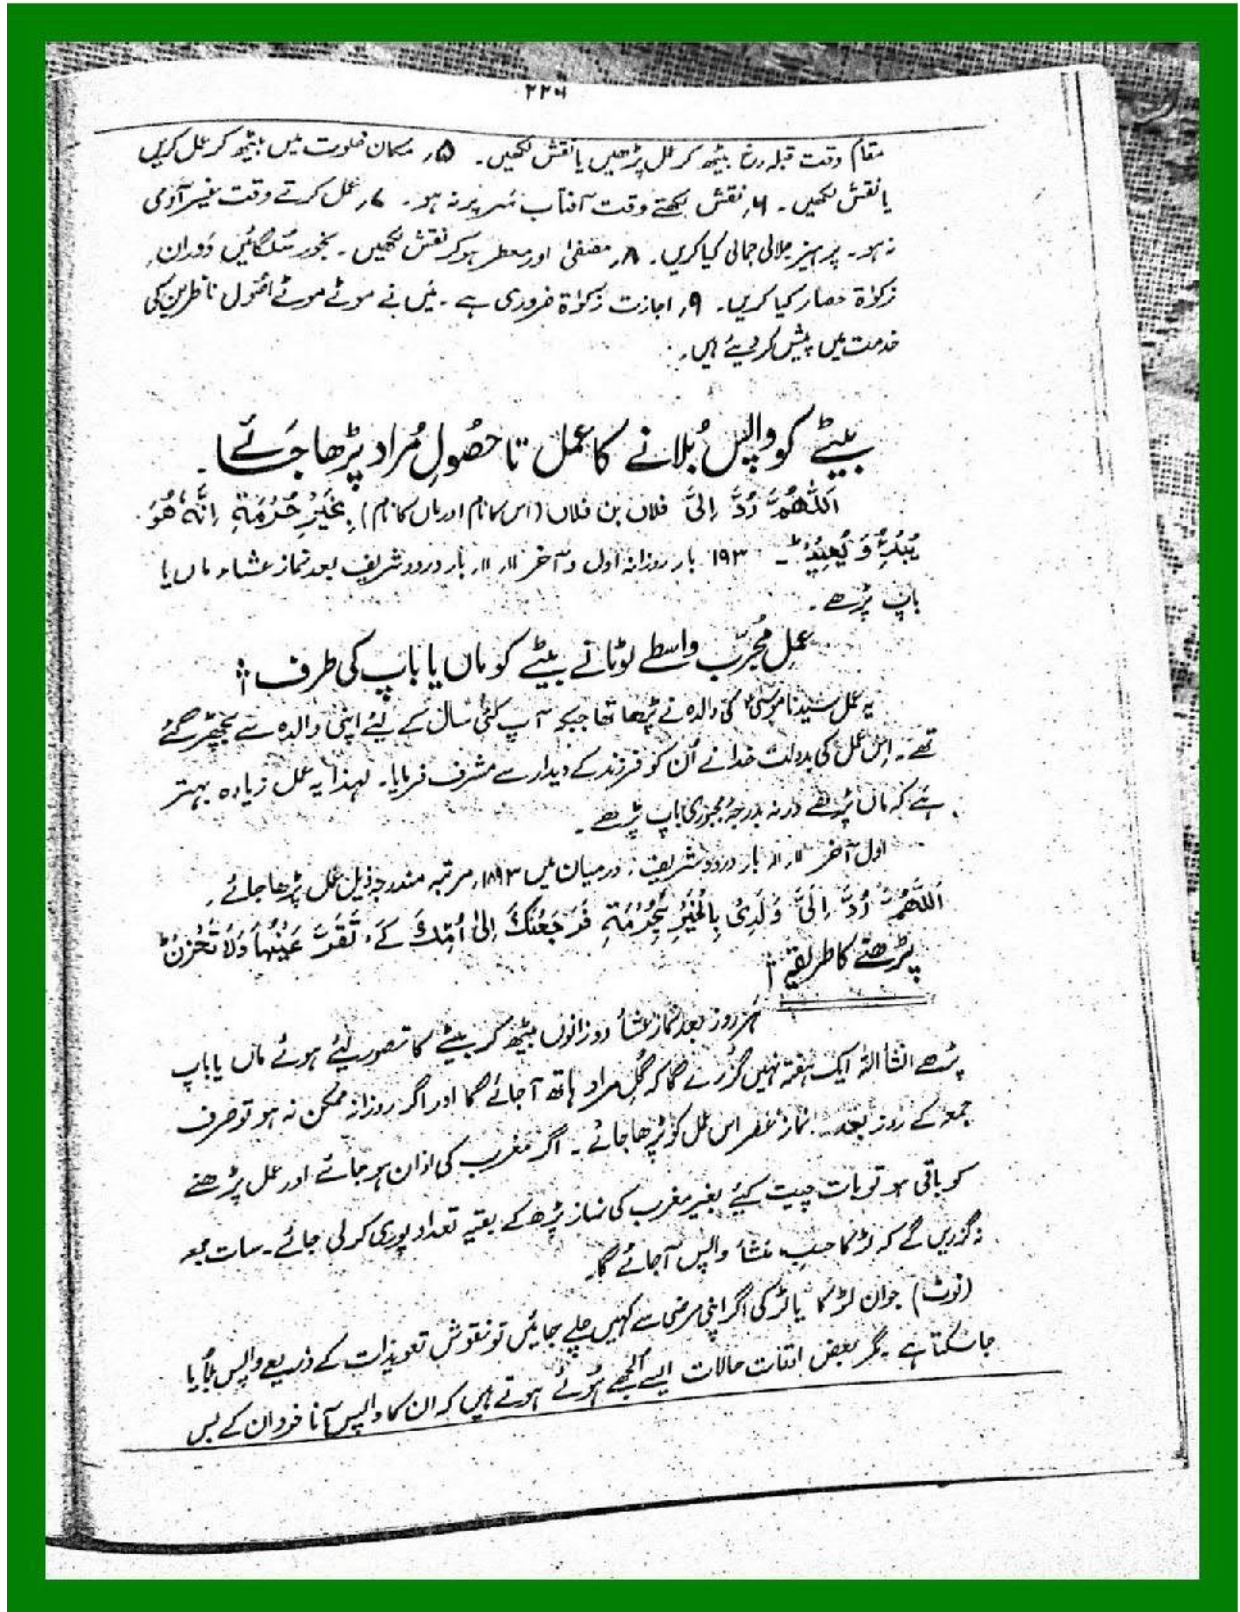 ۲۲۶
مقام وقت قبلہ رخ بیٹھ کر عمل پڑھیں یا نقش لکھیں۔ ۵, مکان خلوت میں بیٹھ کر عمل کریں
یا نقش لکھیں۔ ۶, نقش لکھتے وقت آفتاب سر پر نہ ہو۔ ۷, عمل کرتے وقت غیر آدمی
نہ ہو۔ پرہیز جلالی جمالی کیا کریں۔ ۸, مصفیٰ اور معطر ہو کر نقش لکھیں۔ بخور سلگائیں دَوران
زکوٰۃ حصار کیا کریں۔ ۹, اجازت زکوٰۃ ضروری ہے۔ میں نے موٹے موٹے اصُول ناظرین کی
خدمت میں پیش کر دیئے ہیں۔
بیٹے کو واپس بُلانے کا عمل تا حصُولِ مُراد پڑھا جَائے۔
اَللّٰھُمَّ رُدَّ اِلیَّ فلاں بن فلاں (اس کا نام اور ماں کا نام) بِغَیْرِ حُرْمَۃِ اِنَّہٗ ھُوَ
یُبْدِئُ وَ یُعِیْدُ۔ ۱۹۳ بار روزانہ اول و آخر ۱۱, ۱۱, بار درود شریف بعد نماز عشاء ماں یا
باپ پڑھے۔
عملِ مُجرّب واسطے لوٹانے بیٹے کو ماں یا باپ کی طرف :
یہ عمل سیدنا موسیٰؑ کی والدہ نے پڑھا تھا جبکہ آپ کئی سال کے لیئے اپنی والدہ سے بچھڑ گئے
تھے۔ اس عمل کی بدولت خدا نے اُن کو فرزند کے دیدار سے مشرف فرمایا۔ لہذا یہ عمل زیادہ بہتر
ہے کہ ماں پڑھے ورنہ بدرجۂ مجبوری باپ پڑھے۔
اول آخر ۱۱, ۱۱ بار درود شریف, درمیان میں ۱۸۹۳, مرتبہ مندرجہ ذیل عمل پڑھا جائے۔
اَللّٰھُمَّ رُدَّ اِلَیَّ وَلَدِیْ بِالْخَیْرِ بِحُرْمَۃِ فَرَجَعْنٰکَ اِلیٰ اُمِّکَ کَے تَقَرَّ عَیْنُہَا وَلَا تَحْزَنْ
پڑھنے کا طریقہ :
ہر روز بعد نماز عشأ دوزانوں بیٹھ کر بیٹے کا تصور لیئے ہوئے ماں یا باپ
پڑھے انشأ اللہ ایک ہفتہ نہیں گزرے گا کہ گلِ مراد ہاتھ آجائے گا اور اگر روزانہ ممکن نہ ہو تو صرف
جمعہ کے روز بعد نماز عصر اس عمل کو پڑھا جائے۔ اگر مغرب کی اذان ہو جائے اور عمل پڑھنے
کو باقی ہو تو بات چیت کیئے بغیر مغرب کی نماز پڑھ کے بقیہ تعداد پوری کر لی جائے۔ سات جمعہ
نہ گزریں گے کہ لڑکا حسبِ منشأ واپس آجائے گا۔
(نوٹ) جوان لڑکا یا لڑکی اگر اپنی مرضی سے کہیں چلے جائیں تو نقوش تعویذات کے ذریعے واپس بلایا
جا سکتا ہے۔ مگر بعض اوقات حالات ایسے اُلجھے ہُوئے ہوتے ہیں کہ ان کا واپس آنا خود ان کے بس